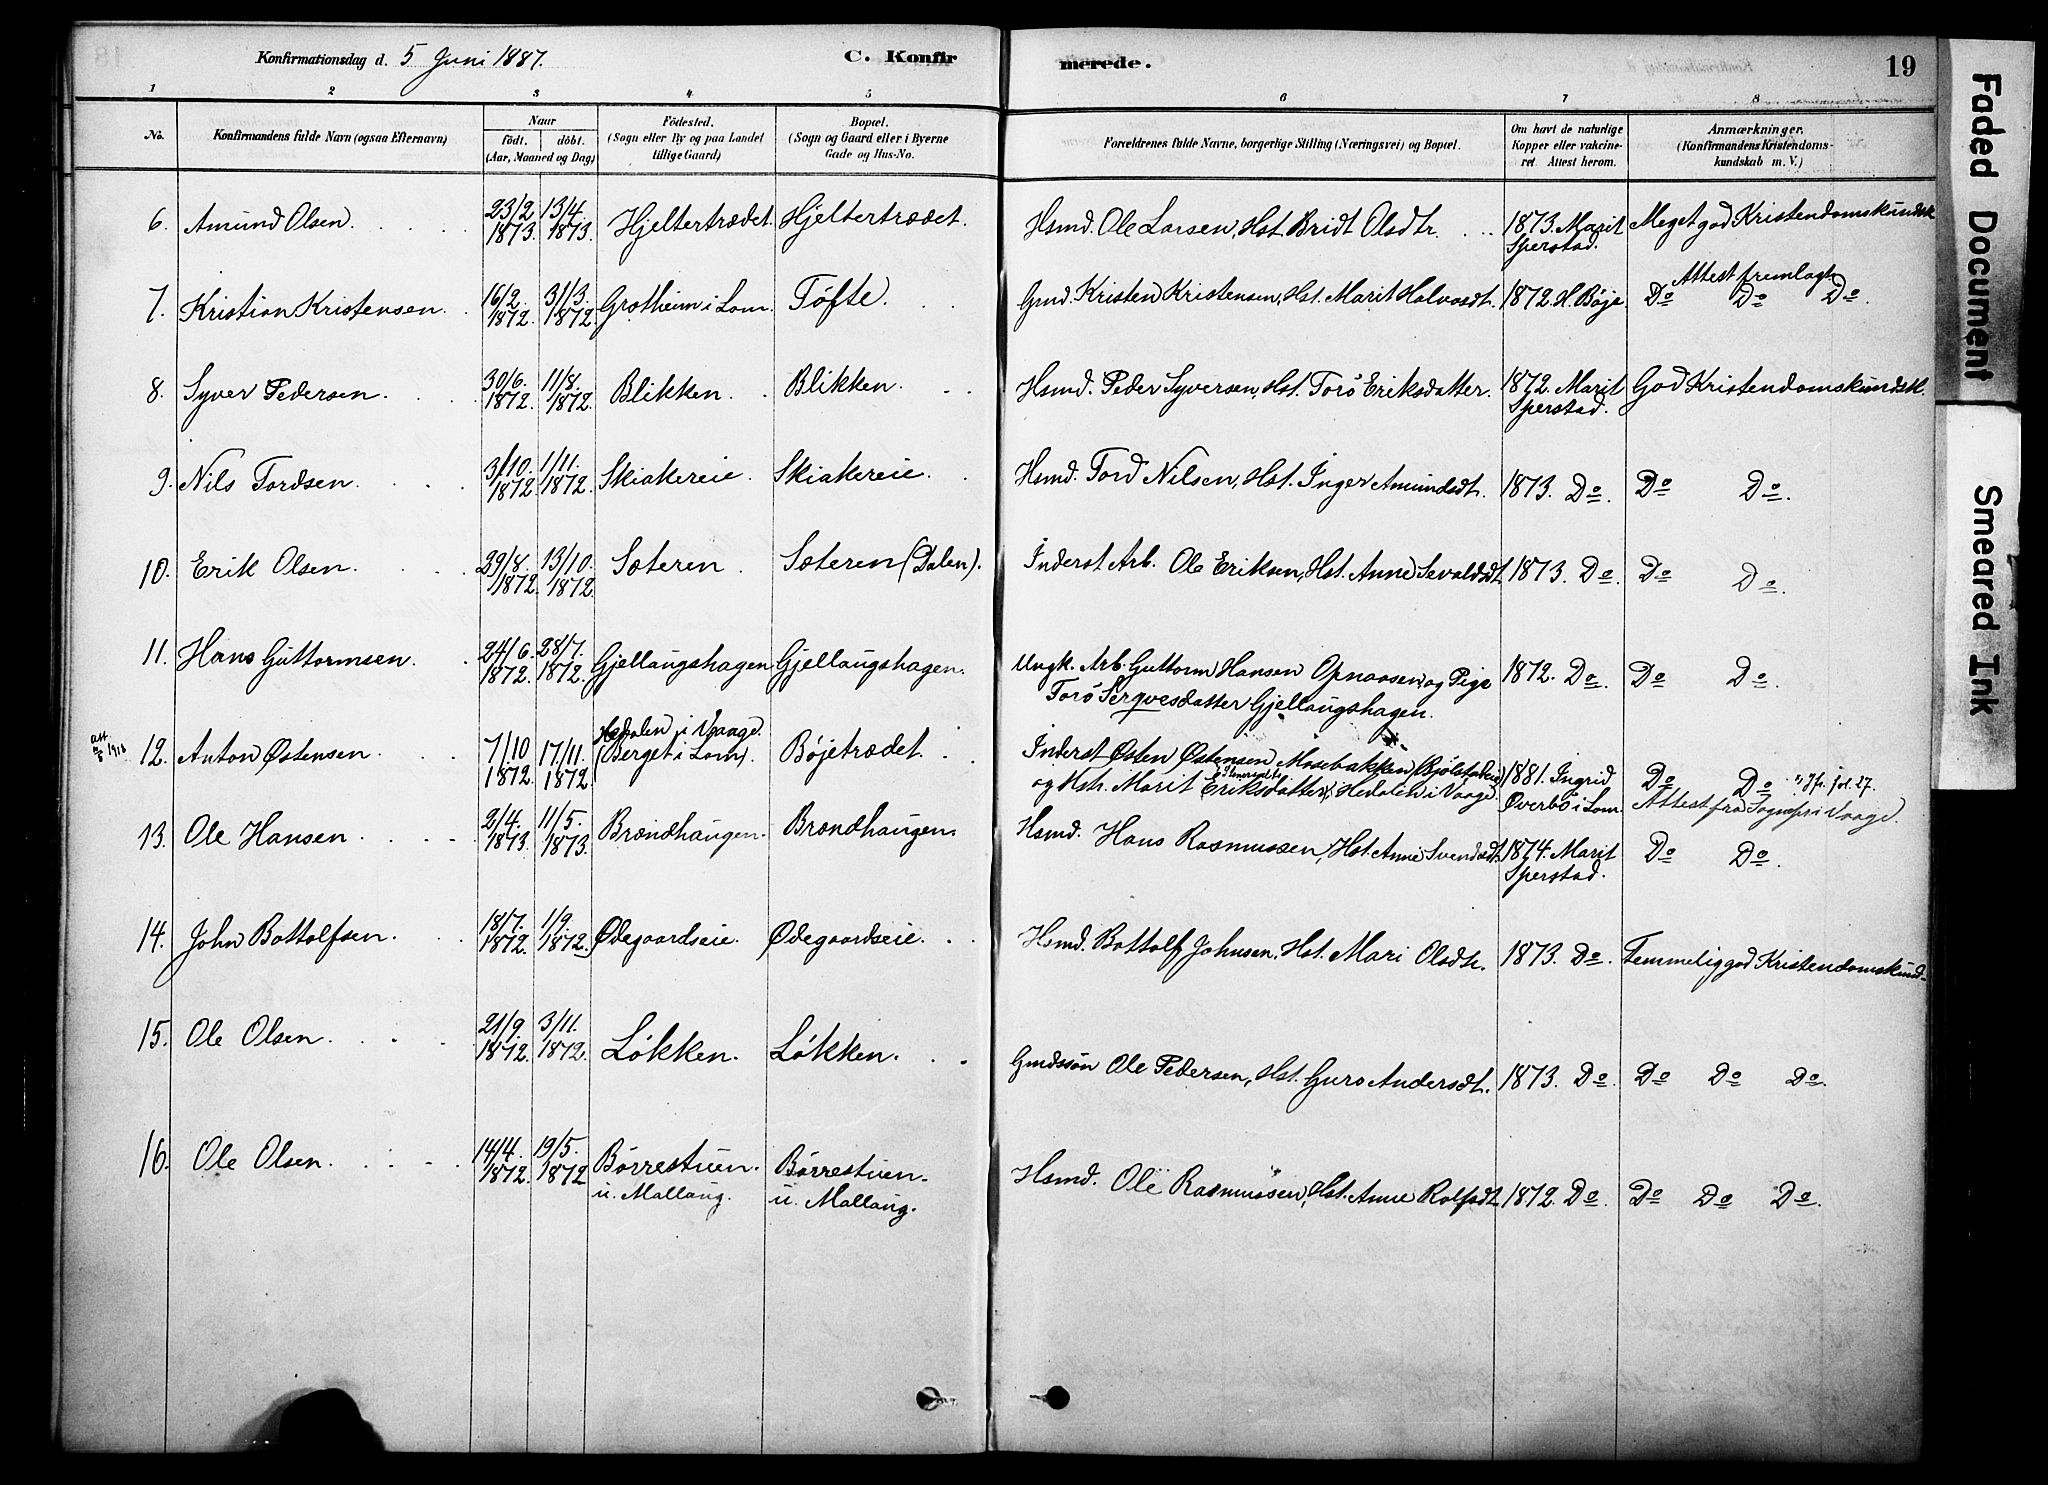 Konfirmationsdag d. 5 Juni 1887. C. Konfirmerede. 19
1 2 3 4 5 6 7 8
No. Konfirmandens fulde Navn (ogsaa Efternavn) Naar födt. döbt. (Aar, Maaned og Dag) Födested. (Sogn eller By og paa Landet tillige Gaard) Bopæl. (Sogn og Gaard eller i Byerne Gade og Hus-No. Forældrenes fulde Navne, borgerlige Stilling (Næringsvei) og Bopæl. Om havt de naturlige Kopper eller vakcineret. Attest herom. Anmærkninger. (Konfirmandens Kristendomskundskab m. V.)
6. Amund Olsen. 23/2 1873. 13/4 1873. Hjeltertrædet. Hjeltertrædet. Hsmd. Ole Larsen, Hst. Bridt Olsdtr. 1873. Marit Sperstad. Meget god Kristendomskundsk
7. Kristian Kristensen. 16/2. 1872. 31/3. 1872. Grotheim i Lom. Tófte. Gmd. Kristen Kristensen, Hst. Marit Halvosdt. 1872. H. Böje Attest fremlagt Do Do Do
8. Syver Pedersen. 30/6. 1872. 11/8. 1872. Blikken. Blikken. Hsmd. Peder Syversen, Hst. Toró Eriksdatter. 1872. Marit Sperstad. God Kristendomskundsk.
9. Nils Tordsen. 3/10. 1872 1/11. 1872. Skiakereie. Skiakereie. Hsmd. Tord Nilsen, Hst. Inger Amundsdt. 1873. Do. Do Do.
10. Erik Olsen. 29/8. 1872. 13/10. 1872. Sæteren. Sæteren (Dalen). Inderst Arb. Ole Eriksen, Hst. Anne Sevaldsdt. 1873. Do. Do Do.
11. Hans Guttormsen. 24/6. 1872. 28/7. 1872. Gjellaugshagen Gjellaugshagen. Ungk. Arb. Guttorm Hansen Opnaasen og Pige 1872. Do. Do Do.
Toró Serqvesdatter Gjellaugshagen.
att 1918 12. Anton Østensen 7/10 1872. 17/11. 1872. Hedalen i Vaage. (Berget i Lom). Böjetrædet. Inderst Østen Østensen Mosebakken (Bjölstadeie 1881. Ingrid Øverbö i Lom. Do Do Jfr. fol. 27.
og Hst. Marit Eriksdatter i Hedalen i Vaage. Attest fra Sognepr. i Vaage.
13. Ole Hansen. 2/4. 1873. 11/5. 1873. Brændhaugen. Brændhaugen. Hsmd. Hans Rasmussen, Hst. Anne Svendsdt. 1874. Marit Sperstad. Do Do.
14. John Bottolfsen. 18/7. 1872. 1/9. 1872. Ødegaardseie. Ødegaardseie. Hsmd. Bottolf Johnsen, Hst. Mari Olsdtr. 1873. Do. Temmelig god Kristendomskund-
15. Ole Olsen. 21/9. 1872. 3/11. 1872. Lókken. Lókken. Gmdssön Ole Pedersen, Hst. Guro Andersdt. 1873. Do. Do Do Do.
16. Ole Olsen. 14/4. 1872. 19/5. 1872 Börrestuen. u. Mallaug. Börrestuen. u. Mallaug. Hsmd. Ole Rasmussen, Hst. Anne Rolfsdt. 1872. Do. Do Do Do.
Faded Document
Smeared Ink